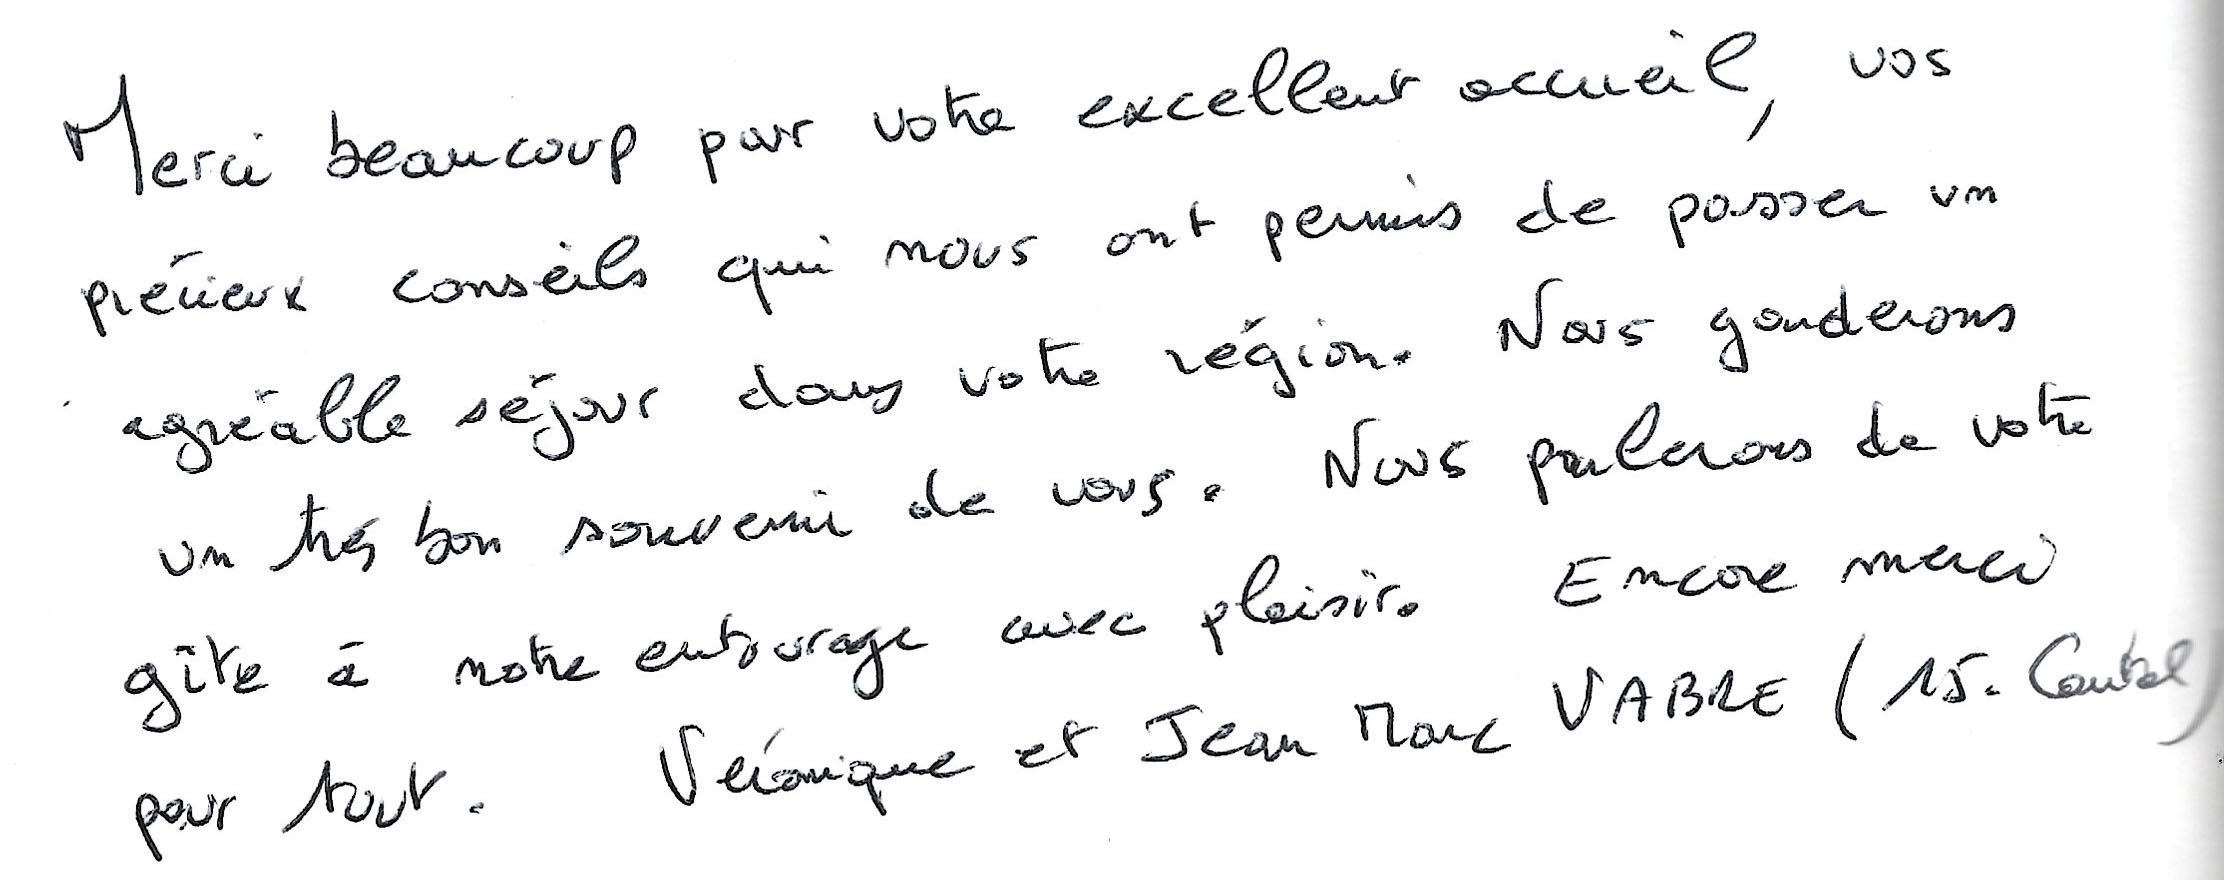 Merci beaucoup pour votre excellent accueil, vos
précieux conseils qui nous ont permis de passer un
agréable séjour dans votre région. Nous garderons
un très bon souvenir de vous. Nous parlerons de votre
gîte à notre entourage avec plaisir. Encore merci
pour tout. Véronique et Jean Marc VABRE (15. Cantal)